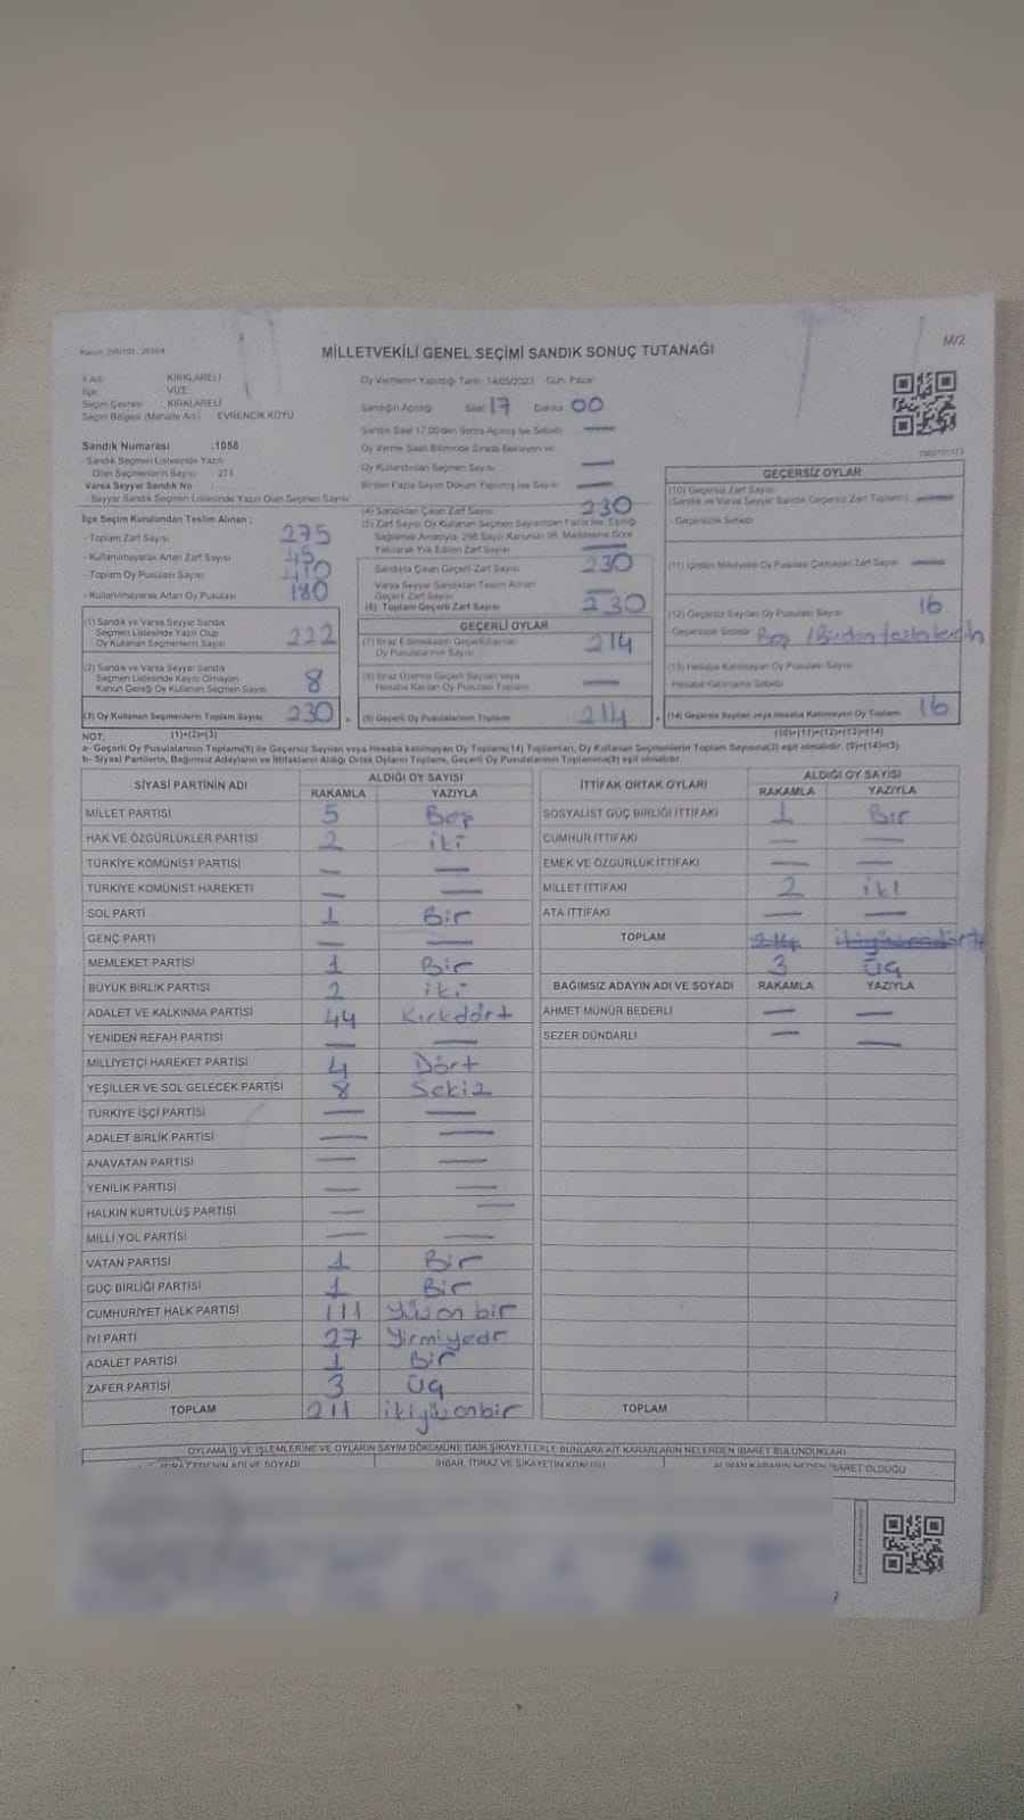 MİLLETVEKİLİ GENEL SEÇİMİ SANDIK SONUÇ TUTANAĞI
M/2
İli : KIRKLARELİ
İlçe : VİZE
Seçim Çevresi : KIRKLARELİ
Seçim Bölgesi (Mahalle Adı) : EVRENCİK KÖYÜ
Oy Vermenin Yapıldığı Tarih: 14/05/2023 Gün: Pazar
Sandığın Açılışı Saat 17 Dakika 00
Sandık Numarası :1058
Sandık Seçmen Listesinde Yazılı
Olan Seçmenlerin Sayısı
Varsa Seyyar Sandık No
Seyyar Sandık Seçmen Listesinde Yazılı Olan Seçmen Sayısı
İlçe Seçim Kurulundan Teslim Alınan ;
- Toplam Zarf Sayısı 275
- Kullanılmayarak Artan Zarf Sayısı 45
- Toplam Oy Pusulası Sayısı
- Kullanılmayarak Artan Oy Pusulası 180
(1) Sandık ve Varsa Seyyar Sandık
Seçmen Listesinde Yazılı Olup
Oy Kullanan Seçmenlerin Sayısı 222
(2) Sandık ve Varsa Seyyar Sandık
Seçmen Listesinde Kayıtlı Olmayan
Kanun Gereği Oy Kullanan Seçmen Sayısı 8
(3) Oy Kullanan Seçmenlerin Toplam Sayısı 230
(1)+(2)=(3)
(4) Sandıktan Çıkan Zarf Sayısı 230
Sandıkta Çıkan Geçerli Zarf Sayısı 230
Varsa Seyyar Sandıktan Teslim Alınan
Geçerli Zarf Sayısı —
(6) Toplam Geçerli Zarf Sayısı 230
GEÇERLİ OYLAR
(7) İtiraz Edilmeksizin Geçerli Sayılan
Oy Pusulalarının Sayısı 214
(8) İtiraz Üzerine Geçerli Sayılan veya
Hesaba Katılan Oy Pusulası Toplamı —
(9) Geçerli Oy Pusulalarının Toplamı 214
GEÇERSİZ OYLAR
(10) Geçersiz Zarf Sayısı
- Geçersizlik Sebebi
(12) Geçersiz Sayılan Oy Pusulası Sayısı 16
Geçersizlik Sebebi Boş
(13) Hesaba Katılmayan Oy Pusulası Sayısı
- Hesaba Katılmama Sebebi
(14) Geçersiz Sayılan veya Hesaba Katılmayan Oy Toplamı 16
(10)+(11)+(12)+(13)=(14)
NOT:
a- Geçerli Oy Pusulalarının Toplamı(9) ile Geçersiz Sayılan veya Hesaba katılmayan Oy Toplamı(14) Toplamları, Oy Kullanan Seçmenlerin Toplam Sayısına(3) eşit olmalıdır. (9)+(14)=(3)
b- Siyasi Partilerin, Bağımsız Adayların ve İttifakların Aldığı Ortak Oyların Toplamı, Geçerli Oy Pusulalarının Toplamına(9) eşit olmalıdır.
SİYASİ PARTİNİN ADI ALDIĞI OY SAYISI
RAKAMLA YAZIYLA
MİLLET PARTİSİ 5 Beş
HAK VE ÖZGÜRLÜKLER PARTİSİ 2 iki
TÜRKİYE KOMÜNİST PARTİSİ — —
TÜRKİYE KOMÜNİST HAREKETİ — —
SOL PARTİ 1 Bir
GENÇ PARTİ — —
MEMLEKET PARTİSİ 1 Bir
BÜYÜK BİRLİK PARTİSİ 2 iki
ADALET VE KALKINMA PARTİSİ 44 Kırkdört
YENİDEN REFAH PARTİSİ — —
MİLLİYETÇİ HAREKET PARTİSİ 4 Dört
YEŞİLLER VE SOL GELECEK PARTİSİ 8 Sekiz
TÜRKİYE İŞÇİ PARTİSİ — —
ADALET BİRLİK PARTİSİ — —
ANAVATAN PARTİSİ — —
YENİLİK PARTİSİ — —
HALKIN KURTULUŞ PARTİSİ — —
MİLLİ YOL PARTİSİ — —
VATAN PARTİSİ 1 Bir
GÜÇ BİRLİĞİ PARTİSİ 1 Bir
CUMHURİYET HALK PARTİSİ 111 Yüzonbir
İYİ PARTİ 27 Yirmiyedi
ADALET PARTİSİ 1 Bir
ZAFER PARTİSİ 3 üç
TOPLAM 211 ikiyüzonbir
İTTİFAK ORTAK OYLARI ALDIĞI OY SAYISI
RAKAMLA YAZIYLA
SOSYALİST GÜÇ BİRLİĞİ İTTİFAKI 1 Bir
CUMHUR İTTİFAKI — —
EMEK VE ÖZGÜRLÜK İTTİFAKI — —
MİLLET İTTİFAKI 2 iki
ATA İTTİFAKI — —
TOPLAM 214 ikiyüzondört
3 üç
BAĞIMSIZ ADAYIN ADI VE SOYADI RAKAMLA YAZIYLA
AHMET MÜNÜR BEDERLİ — —
SEZER DÜNDARLI — —
TOPLAM
OYLAMA İŞ VE İŞLEMLERİNE VE OYLARIN SAYIM DÖKÜMÜNE DAİR ŞİKAYETLERLE BUNLARA AİT KARARLARIN NELERDEN İBARET BULUNDUKLARI
İHBAR, İTİRAZ VE ŞİKAYETİN KONUSU